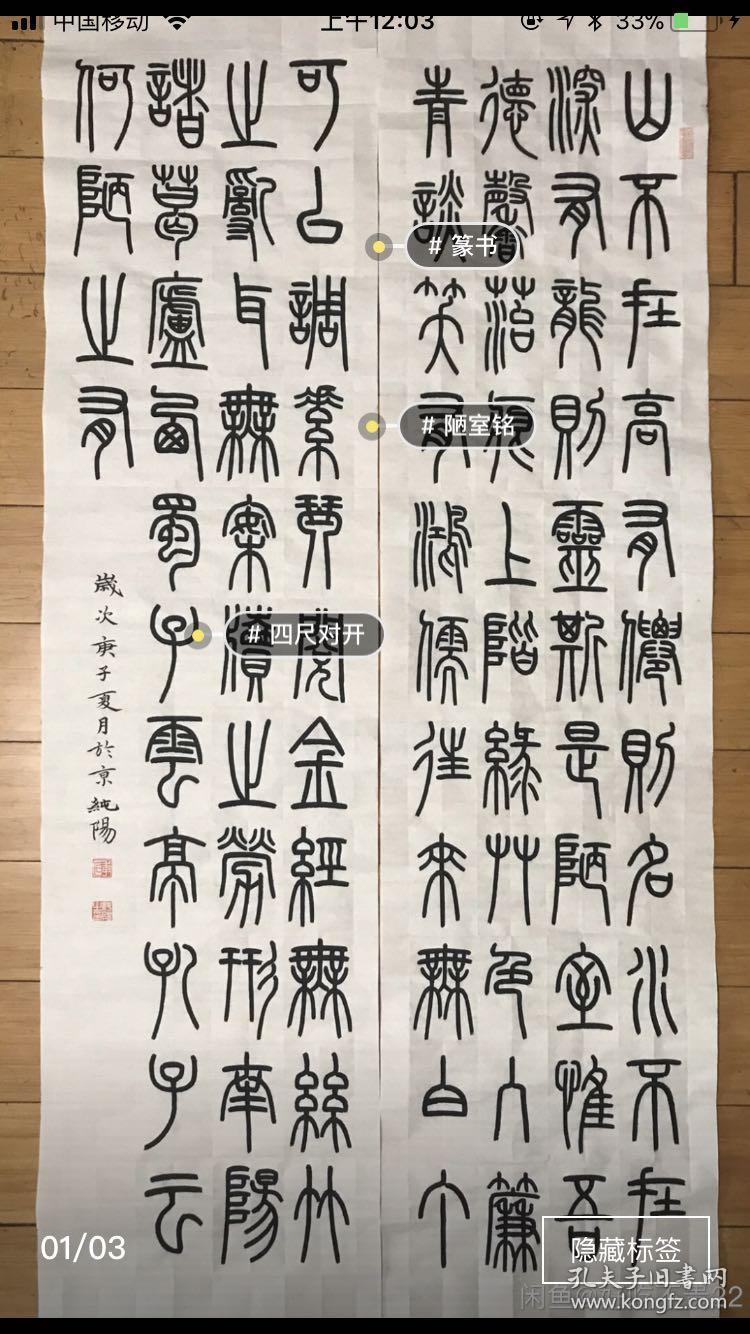 中国移动 上午12:03 33%
山不在高有僊則名水不在
深有龍則靈斯是陋室惟吾
德馨苔痕上階緣艸色入簾
青談笑有鴻儒往來無白丁
可㠯調素琴閱金經無絲竹
之亂耳無案牘之勞形南陽
諸葛廬西蜀子雲亭孔子云
何陋之有
歲次庚子夏月於京純陽
# 篆书
# 陋室铭
# 四尺对开
01/03
隐藏标签
孔夫子旧書网
www.kongfz.com